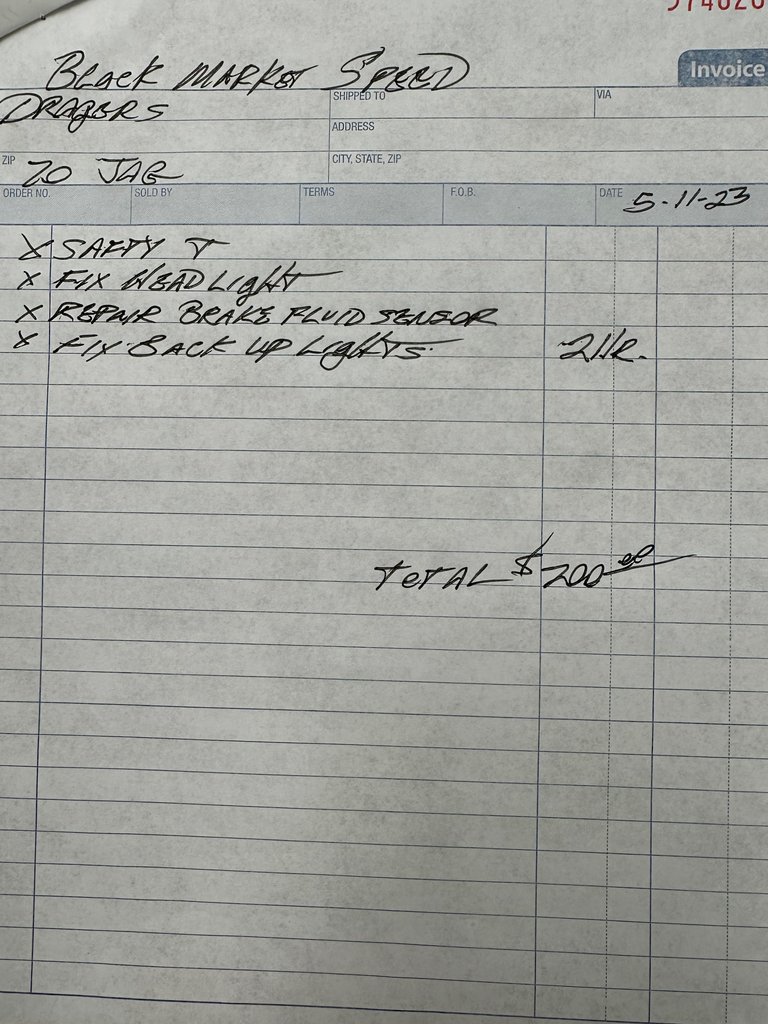 Invoice
BLacK MARKET SPEED
DRAPERS
SHIPPED TO
VIA
ADDRESS
ZIP 70 JAG
CITY, STATE, ZIP
ORDER NO. SOLD BY TERMS F.O.B. DATE 5-11-23
X SAFTY T
X FIX HEAD LighT
X REPAIR BRAKE FLUID SENSOR
X FIX BACK UP LighTS. 2 HR.
ToTAL $200.00